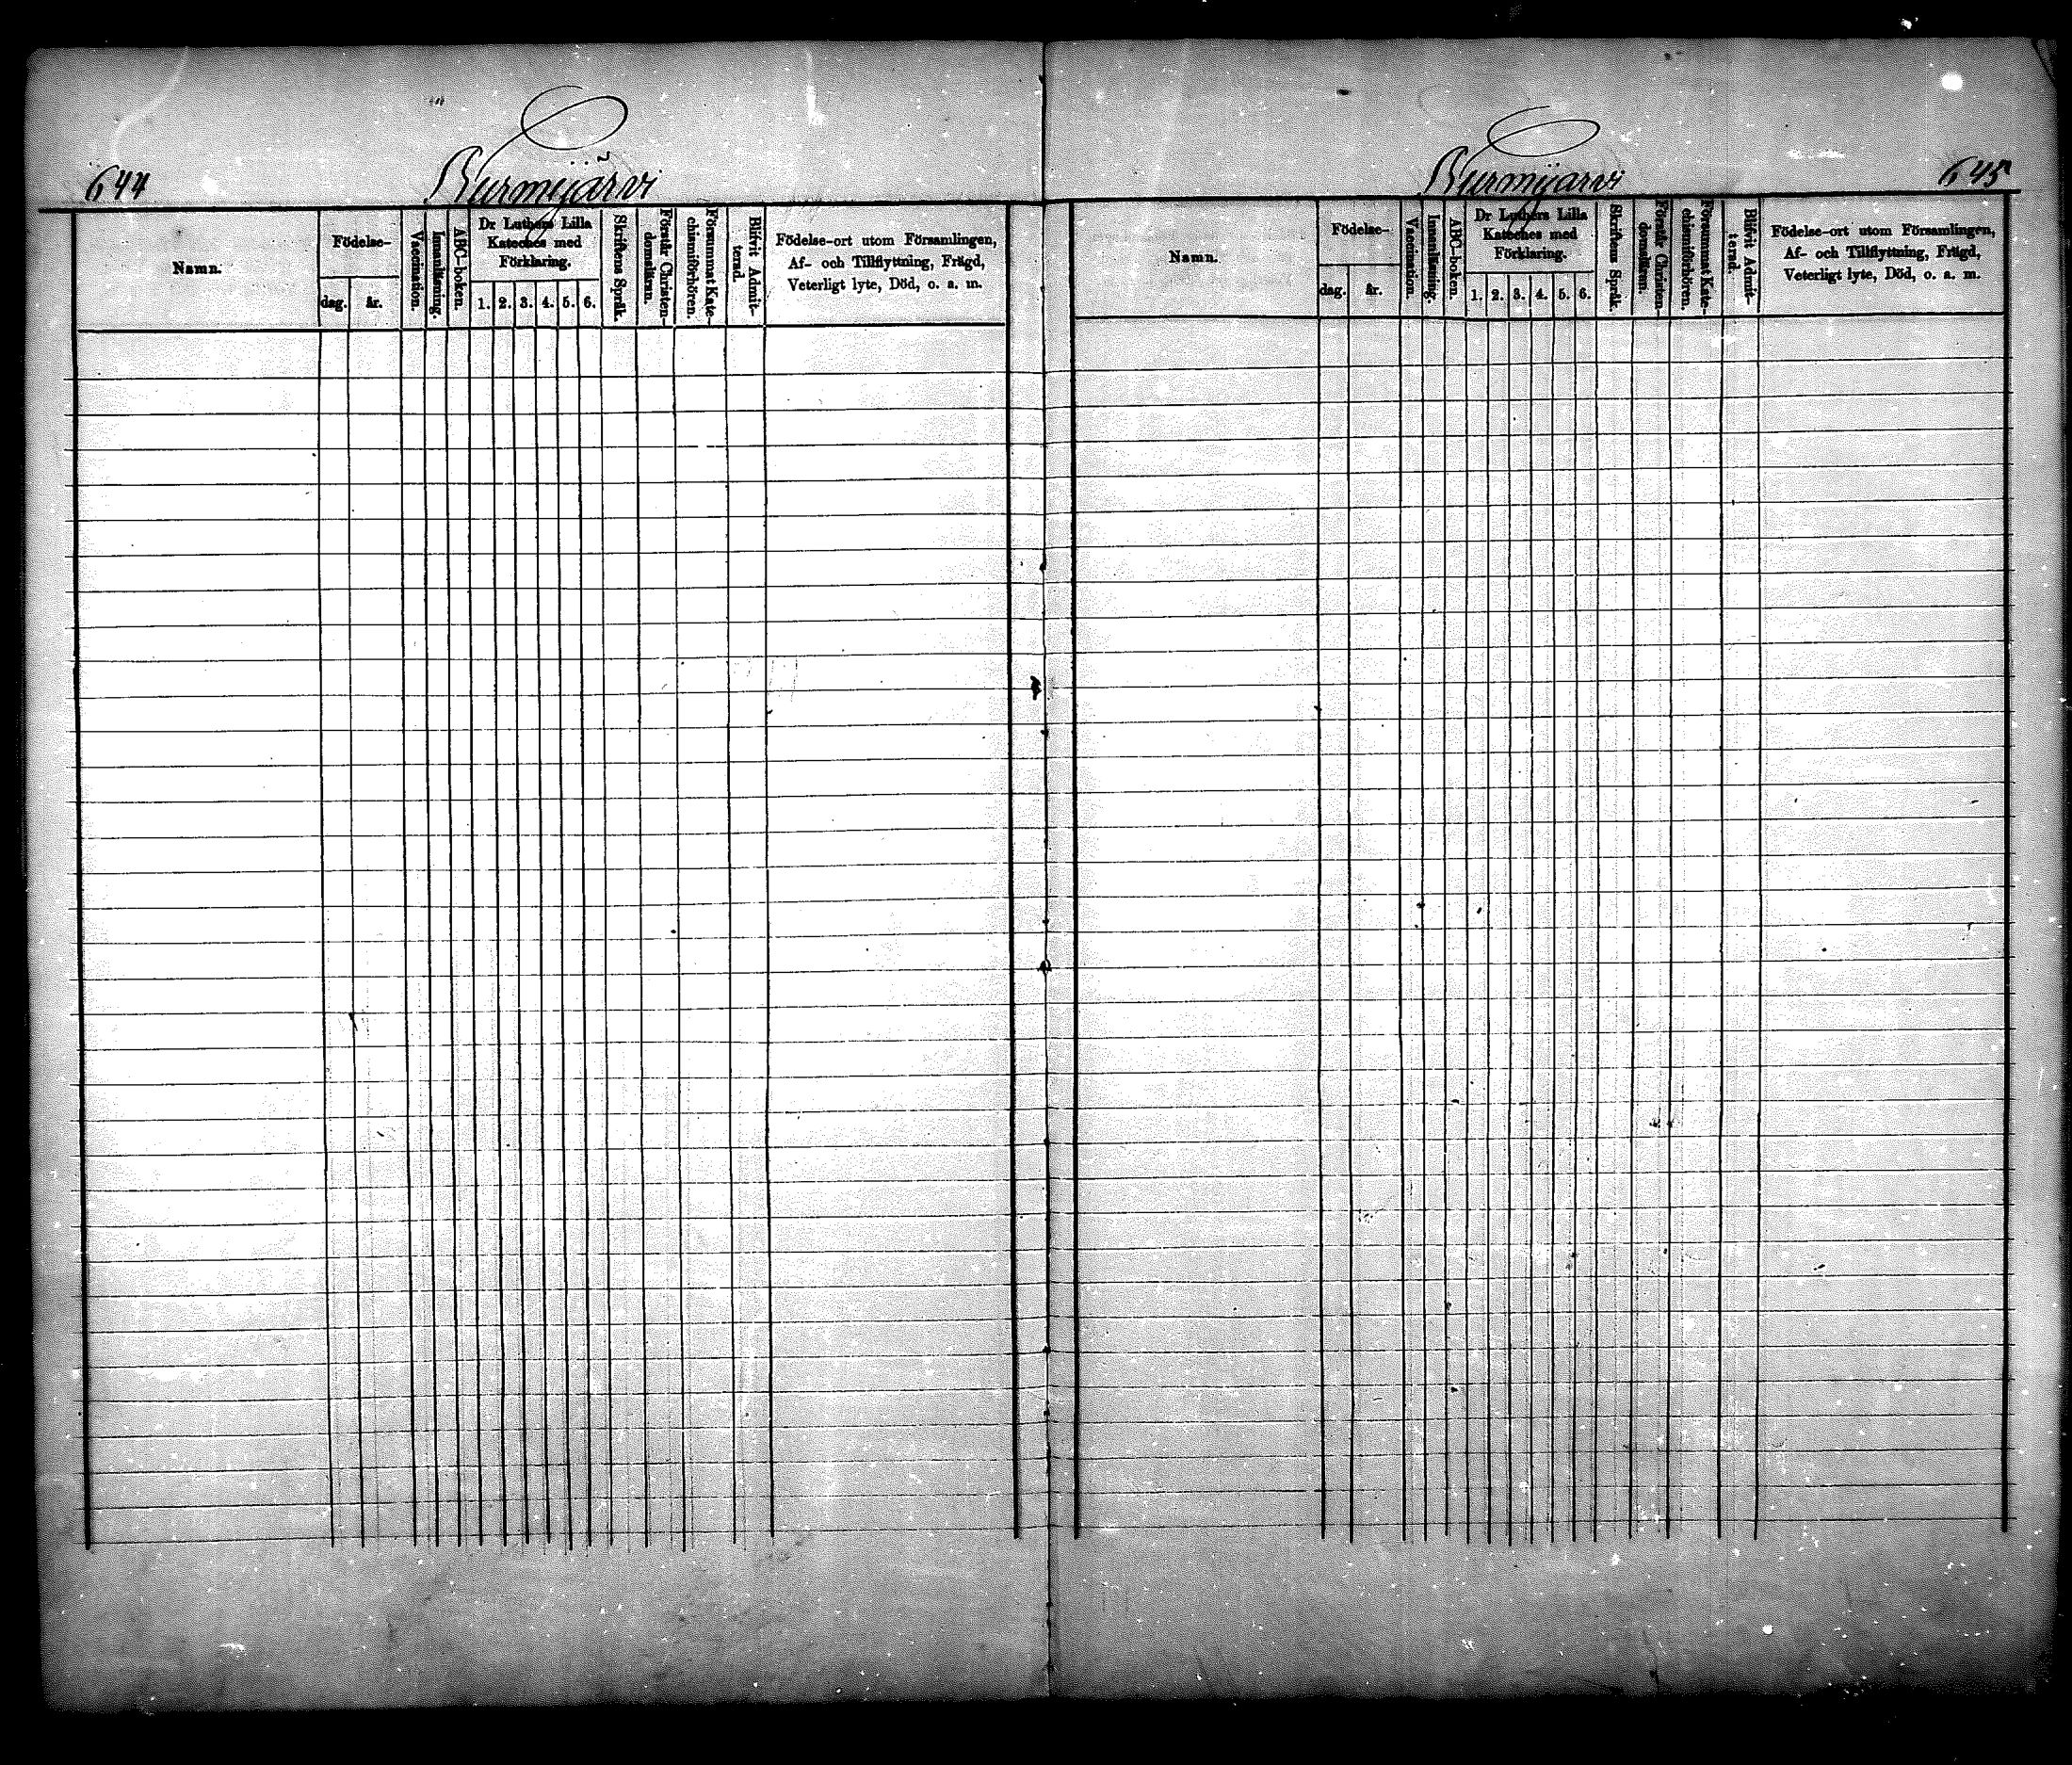 644
Kurmijärvi
Namn.
Födelse-
dag.
år.
Vaccination.
Innanläsning.
ABC-boken.
Dr Luthers Lilla
Kateches med
Förklaring.
1. 2. 3. 4. 5. 6.
Skriftens Språk.
Förstår Christen-
domsläran.
Försummat Kate-
chismiförhören.
Blifvit Admit-
terad.
Födelse-ort utom Församlingen,
Af- och Tillflyttning, Frägd,
Veterligt lyte, Död, o. a. m.
Kurmijarvi
645
Namn.
Födelse-
dag.
år.
Vaccination.
Innanläsning.
ABC-boken.
Dr Luthers Lilla
Kateches med
Förklaring.
1. 2. 3. 4. 5. 6.
Skriftens Språk.
Förstår Christen-
domsläran.
Försummat Kate-
chismiförhören.
Blifvit Admit-
terad.
Födelse-ort utom Församlingen,
Af- och Tillflyttning, Frägd,
Veterligt lyte, Död, o. a. m.